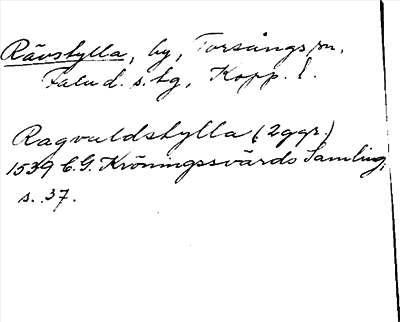 Rävshylla, by, Torsångs sn,
Falu d. s. tg, Kopp. l.
Ragvaldshylla (2 ggr.)
1539 C.G. Kröningssvärds Samling,
s. 37.